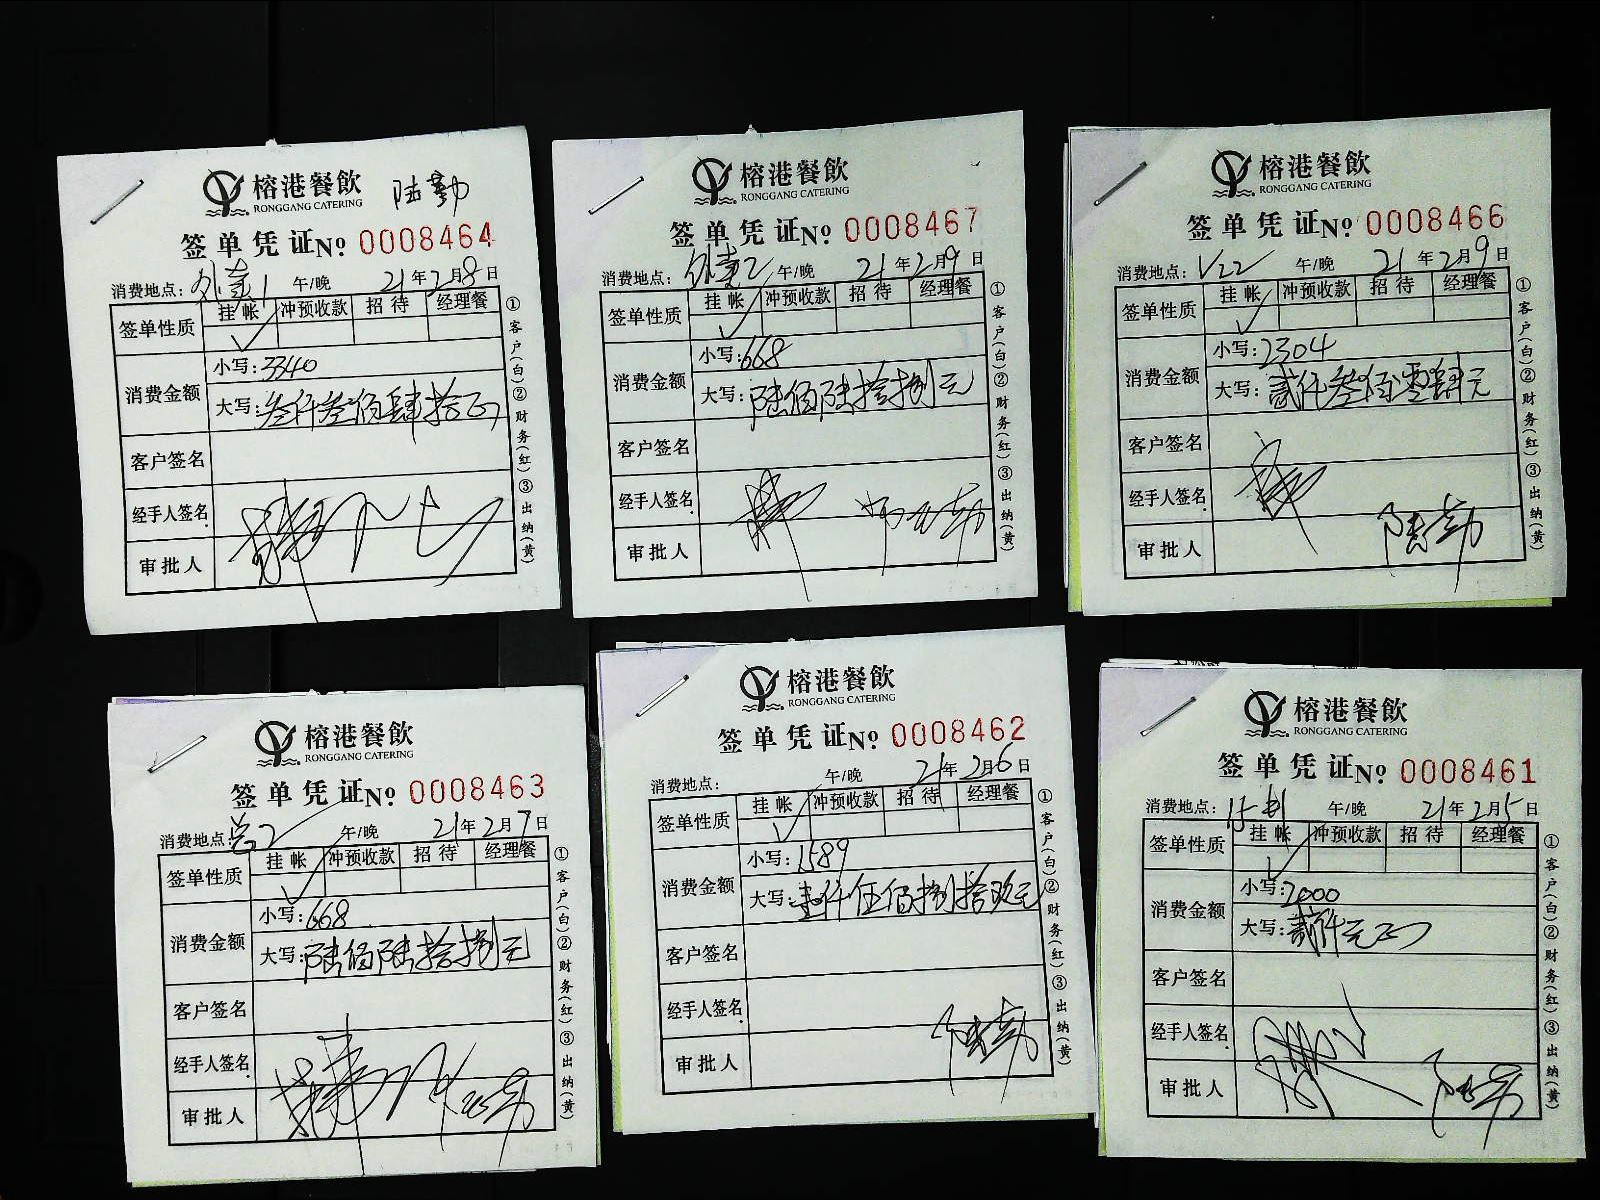 榕港餐飲 陆勤
RONGGANG CATERING
签单凭证No 0008464
消费地点: 午/晚 21年2月8日
签单性质 挂帐 冲预收款 招待 经理餐
✓
消费金额 小写:3340
大写:叁仟叁佰肆拾正
客户签名
经手人签名
审批人
①客户(白)②财务(红)③出纳(黄)
榕港餐飲
RONGGANG CATERING
签单凭证No 0008467
消费地点: 午/晚 21年2月9日
签单性质 挂帐 冲预收款 招待 经理餐
✓
消费金额 小写:668
大写:陆佰陆拾捌元
客户签名
经手人签名
审批人
①客户(白)②财务(红)③出纳(黄)
榕港餐飲
RONGGANG CATERING
签单凭证No 0008466
消费地点:V22 午/晚 21年2月9日
签单性质 挂帐 冲预收款 招待 经理餐
✓
消费金额 小写:2304
大写:贰仟叁佰零肆元
客户签名
经手人签名
审批人 陆勤
①客户(白)②财务(红)③出纳(黄)
榕港餐飲
RONGGANG CATERING
签单凭证No 0008463
消费地点: 午/晚 21年2月7日
签单性质 挂帐 冲预收款 招待 经理餐
✓
消费金额 小写:668
大写:陆佰陆拾捌元
客户签名
经手人签名
审批人
①客户(白)②财务(红)③出纳(黄)
榕港餐飲
RONGGANG CATERING
签单凭证No 0008462
消费地点: 午/晚 21年2月6日
签单性质 挂帐 冲预收款 招待 经理餐
✓
消费金额 小写:1589
大写:壹仟伍佰捌拾玖元
客户签名
经手人签名
审批人 陆勤
①客户(白)②财务(红)③出纳(黄)
榕港餐飲
RONGGANG CATERING
签单凭证No 0008461
消费地点: 午/晚 21年2月5日
签单性质 挂帐 冲预收款 招待 经理餐
✓
消费金额 小写:2000
大写:贰仟元正
客户签名
经手人签名
审批人 陆勤
①客户(白)②财务(红)③出纳(黄)